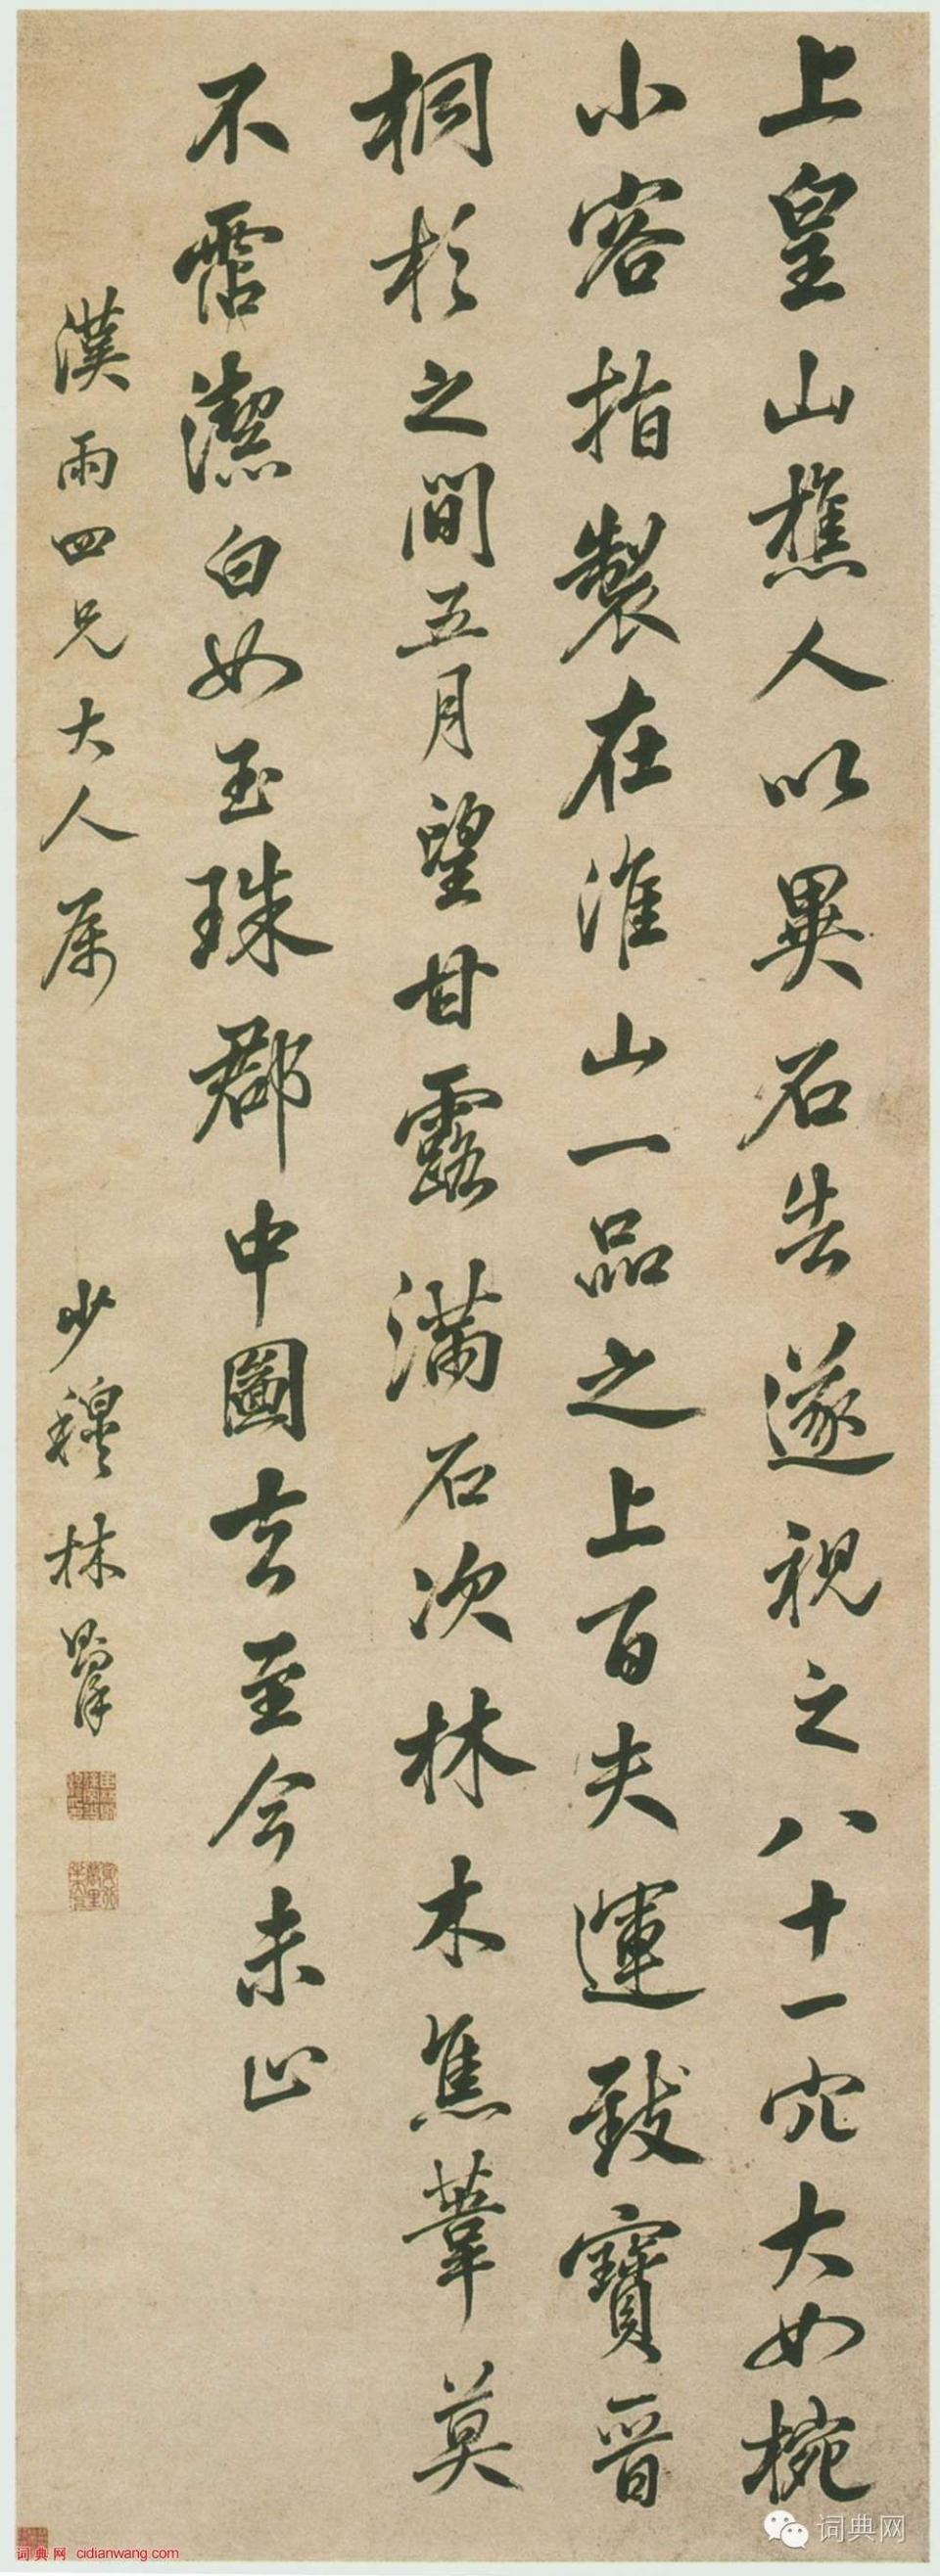 上皇山樵人以異石告遂視之八十一穴大如椀
小容指製在淮山一品之上百夫運致寶晉
桐杉之間五月望甘露滿石次林木焦葦莫
不霑潔白如玉珠郡中圖去至今未止
漢雨四兄大人属
少穆林則徐
词典网
词典网 cidianwang.com